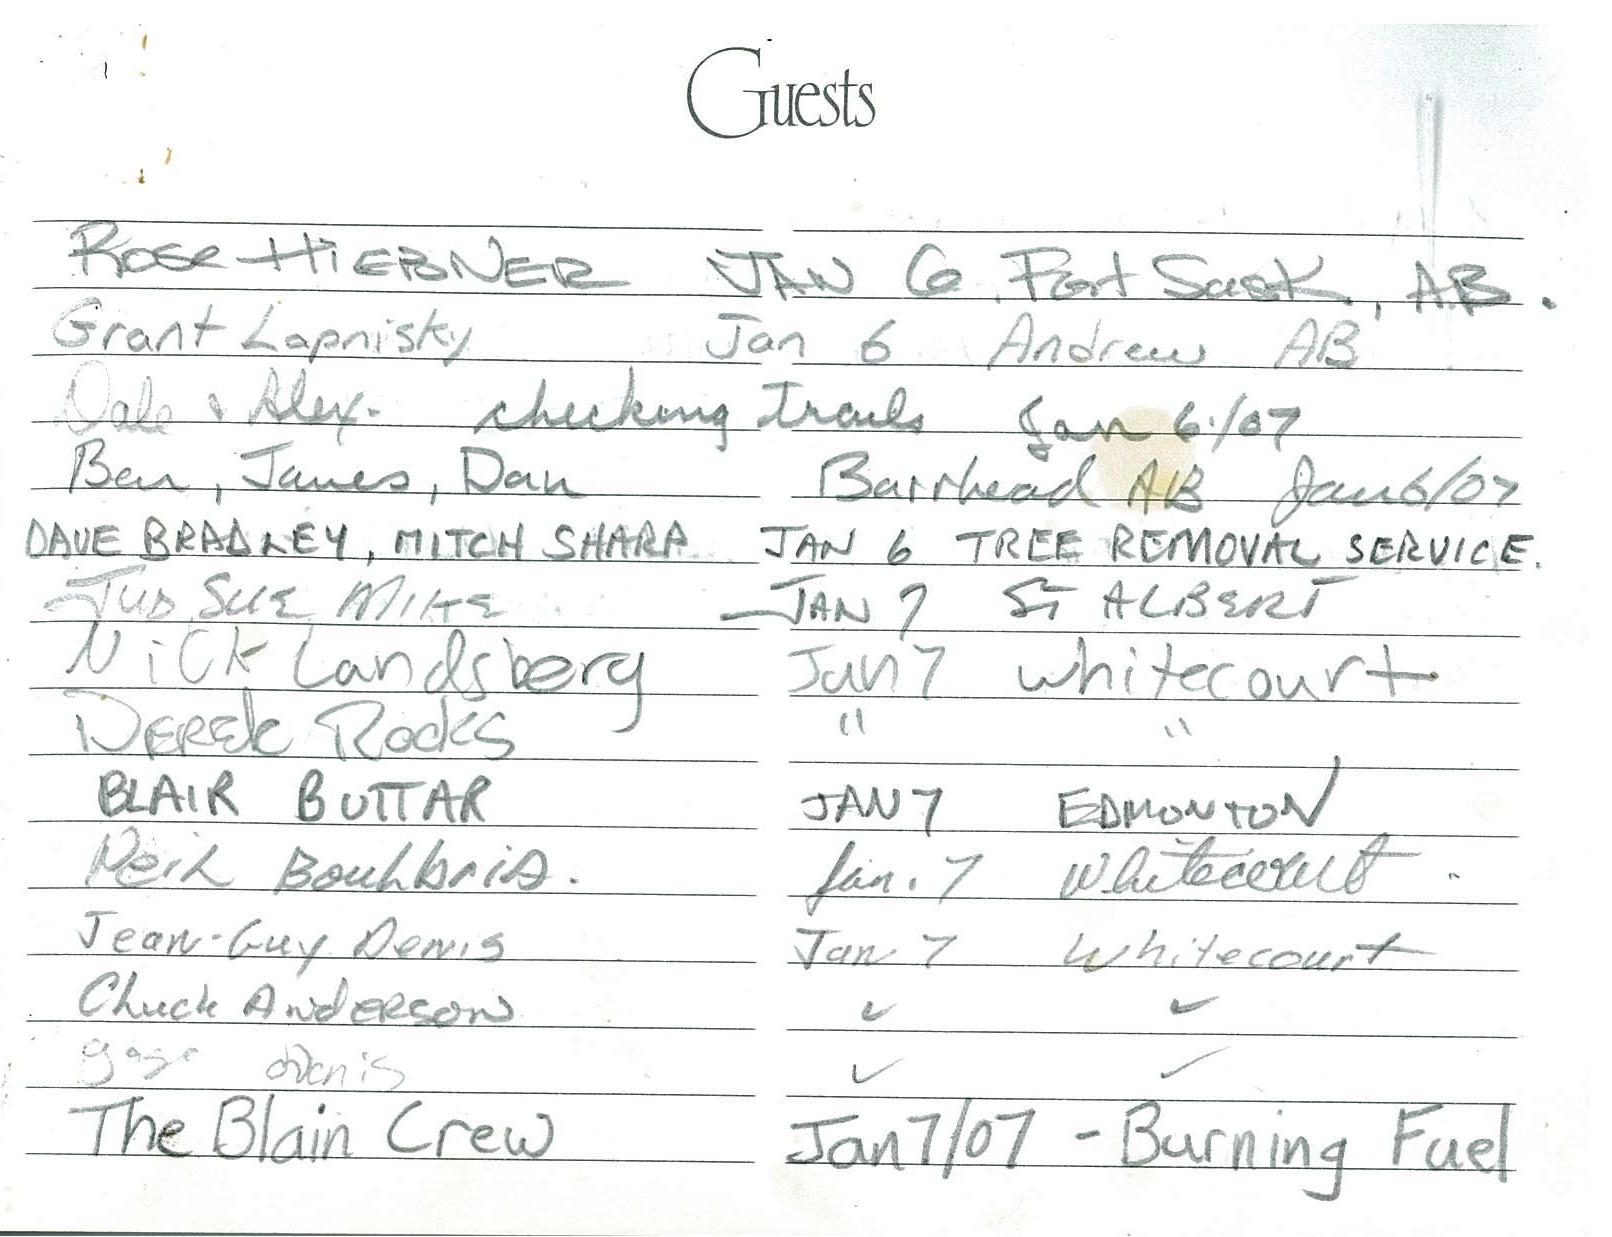 Guests
ROSE HIEBNER JAN 6 Fort Sask, AB.
Grant Lapnisky Jan 6 Andrew AB
Dale & Alex. checking trails Jan 6./07
Ben, James, Dan Barrhead AB Jan 6/07
DAVE BRADLEY, MITCH SHARP JAN 6 TREE REMOVAL SERVICE.
SUE MIKE JAN 7 ST ALBERT
NiCk Landsberg Jan 7 whitecourt
DEREK Rocks " "
BLAIR BUTTAR JAN 7 EDMONTON
Neil Jan. 7 Whitecourt.
Jean-Guy Denis Jan 7 Whitecourt
Chuck ANDERSON ✓ ✓
gage Denis ✓ ✓
The Blain Crew Jan 7/07 - Burning Fuel